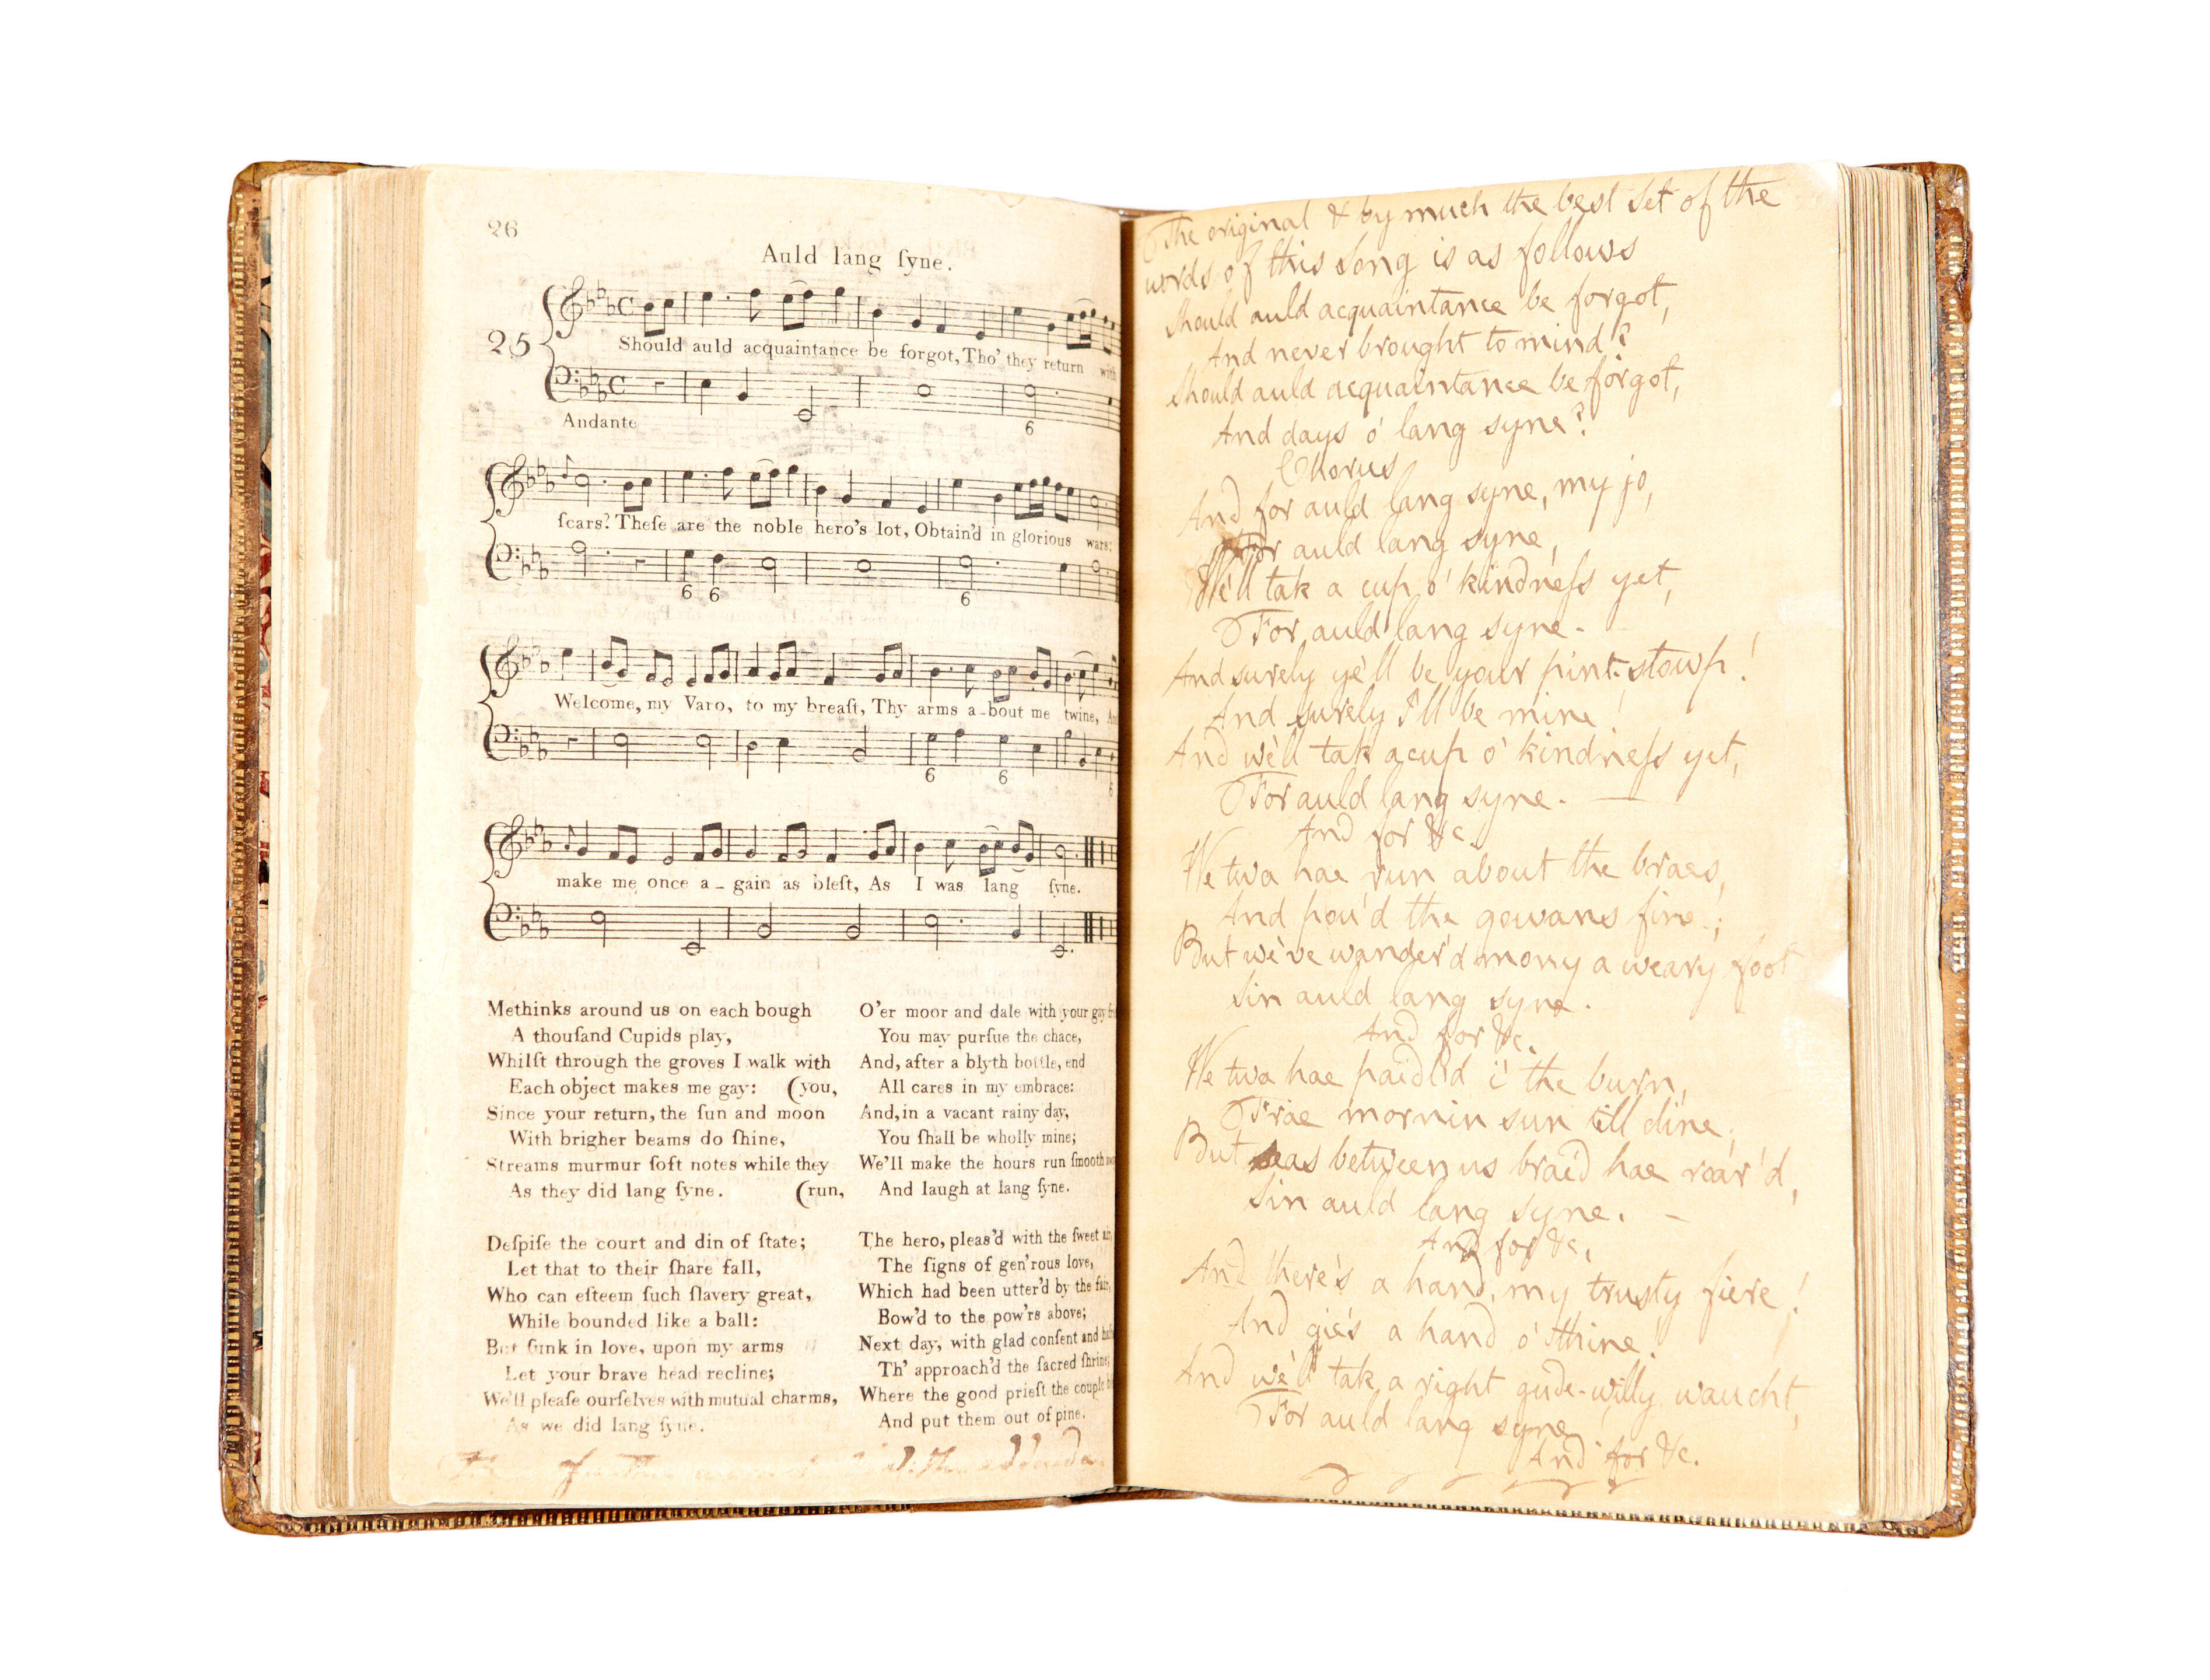 26
Auld lang ſyne.
25
Should auld acquaintance be forgot, Tho' they return with
Andante
6
ſcars? Theſe are the noble hero's lot, Obtain'd in glorious wars:
6 6 6
Welcome, my Varo, to my breaſt, Thy arms a-bout me twine, And
6 6 6
make me once a-gain as bleſt, As I was lang ſyne.
Methinks around us on each bough
A thouſand Cupids play,
Whilſt through the groves I walk with
Each object makes me gay: (you,
Since your return, the ſun and moon
With brigher beams do ſhine,
Streams murmur ſoft notes while they
As they did lang ſyne. (run,
Deſpiſe the court and din of ſtate;
Let that to their ſhare fall,
Who can eſteem ſuch ſlavery great,
While bounded like a ball:
But ſunk in love, upon my arms
Let your brave head recline;
We'll pleaſe ourſelves with mutual charms,
As we did lang ſyne.
O'er moor and dale with your gay
You may purſue the chace,
And, after a blyth bottle, end
All cares in my embrace:
And, in a vacant rainy day,
You ſhall be wholly mine;
We'll make the hours run ſmooth
And laugh at lang ſyne.
The hero, pleas'd with the ſweet air,
The ſigns of gen'rous love,
Which had been utter'd by the fair,
Bow'd to the pow'rs above;
Next day, with glad conſent and
Th' approach'd the ſacred ſhrine;
Where the good prieſt the couple
And put them out of pine.
The original & by much the best set of the
words of this song is as follows
Should auld acquaintance be forgot,
And never brought to mind?
Should auld acquaintance be forgot,
And days o' lang syne?
Chorus
And for auld lang syne, my jo,
For auld lang syne,
We'll tak a cup o' kindneſs yet,
For auld lang syne.
And surely ye'll be your pint-stowp!
And surely I'll be mine!
And we'll tak a cup o' kindneſs yet,
For auld lang syne. —
And for &c.
We twa hae run about the braes,
And pou'd the gowans fine;
But we've wander'd mony a weary foot
Sin auld lang syne.
And for &c.
We twa hae paidl'd i' the burn,
Frae mornin sun till dine;
But seas between us braid hae roar'd,
Sin auld lang syne. —
And for &c.
And there's a hand, my trusty fiere!
And gie's a hand o' thine!
And we'll tak a right gude-willy waucht,
For auld lang syne
And for &c.